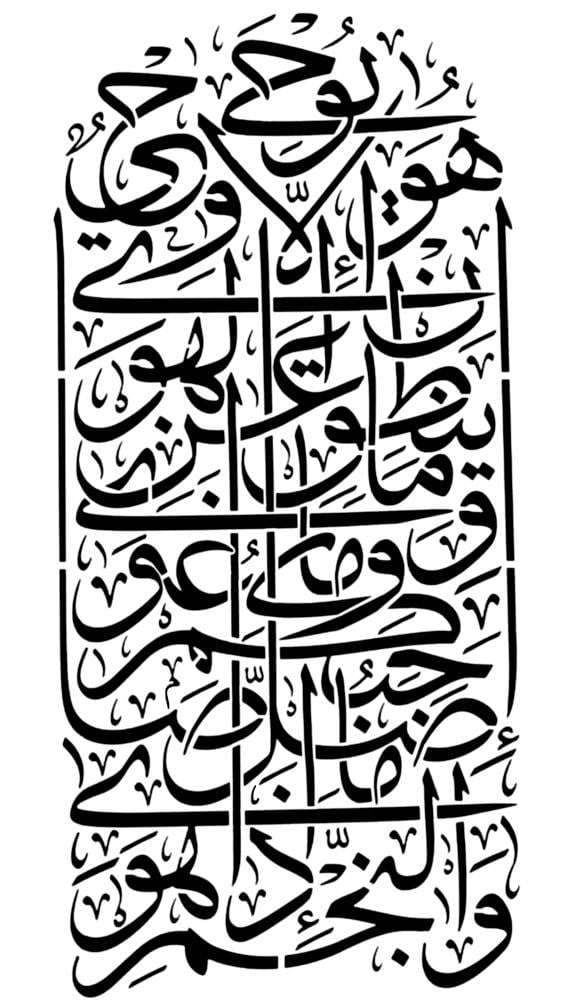 والنجم إذا هوى
ما ضل صاحبكم وما غوى
وما ينطق عن الهوى
إن هو إلا وحي يوحى